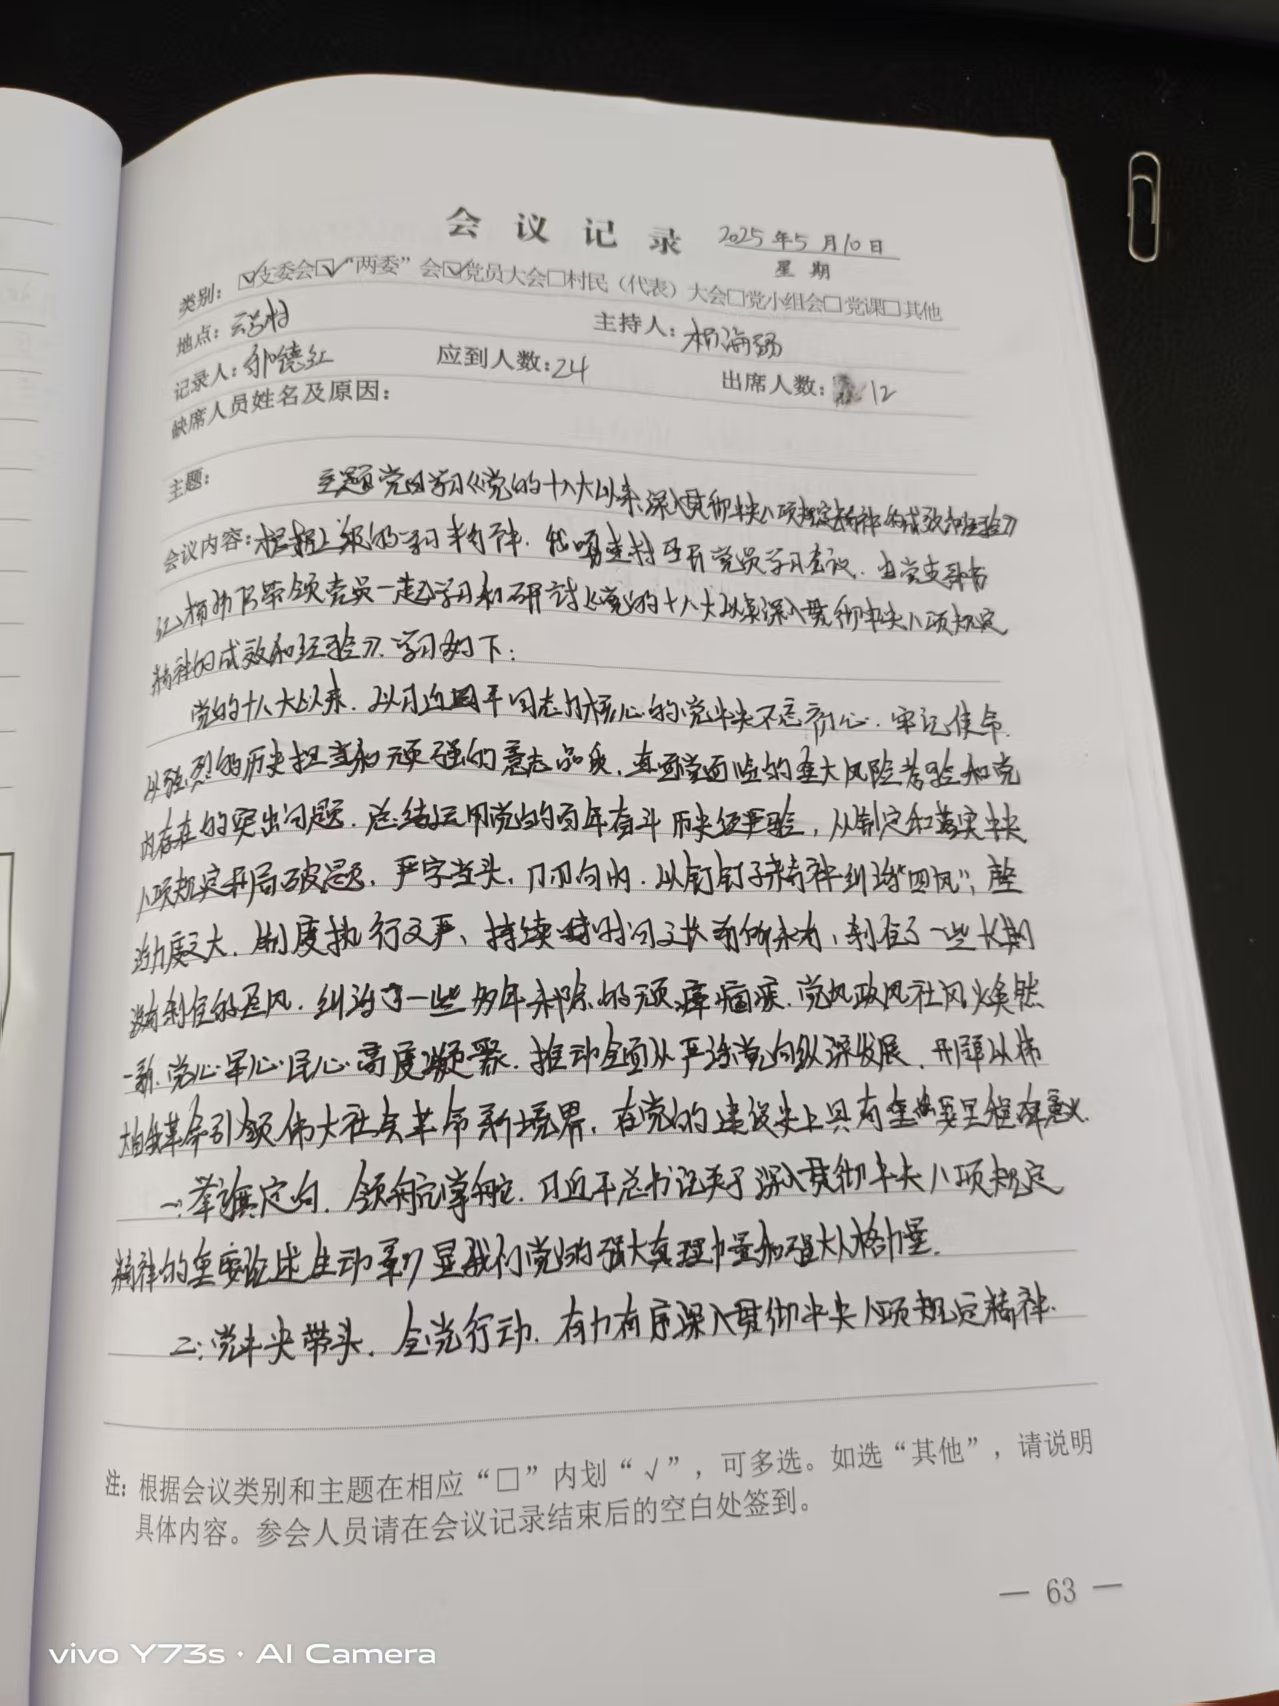 会议记录 2025年5月10日
星期
类别：☑支委会☑“两委”会☑党员大会□村民（代表）大会□党小组会□党课□其他
地点： 主持人：杨海
记录人：邹德红 应到人数：24 出席人数：12
缺席人员姓名及原因：
主题： 主题党日学习《党的十八大以来深入贯彻中央八项规定精神的成效和经验》
会议内容：根据上级的学习 召开党员学习会议．由党支部书
记杨 带领党员一起学习和研讨《党的十八大以来深入贯彻中央八项规定
精神的成效和经验》．学习如下：
党的十八大以来．以习近平同志为核心的党中央不忘初心．牢记使命．
以强烈的历史担当和顽强的意志品质．直面党面临的重大风险考验和党
内存在的突出问题．总结运用党的百年奋斗历史经验，从制定和落实中央
八项规定开局破题．严字当头，刀刃向内．以钉钉子精神纠治“四风”，整
治力度之大．制度执行之严、持续时间之长前所未有，刹住了一些长期
没有刹住的歪风．纠治了一些多年未除的顽瘴痼疾．党风政风社风焕然
一新．党心军心民心高度凝聚．推动全面从严治党向纵深发展．开辟以伟
大自我革命引领伟大社会革命新境界．在党的建设史上具有重要里程碑意义．
一：举旗定向．领航掌舵．习近平总书记关于深入贯彻中央八项规定
精神的重要论述生动彰显我们党的强大真理力量和强大人格力量．
二：党中央带头．全党行动．有力有序深入贯彻中央八项规定精神．
注：根据会议类别和主题在相应“□”内划“√”，可多选。如选“其他”，请说明
具体内容。参会人员请在会议记录结束后的空白处签到。
— 63 —
vivo Y73s · AI Camera